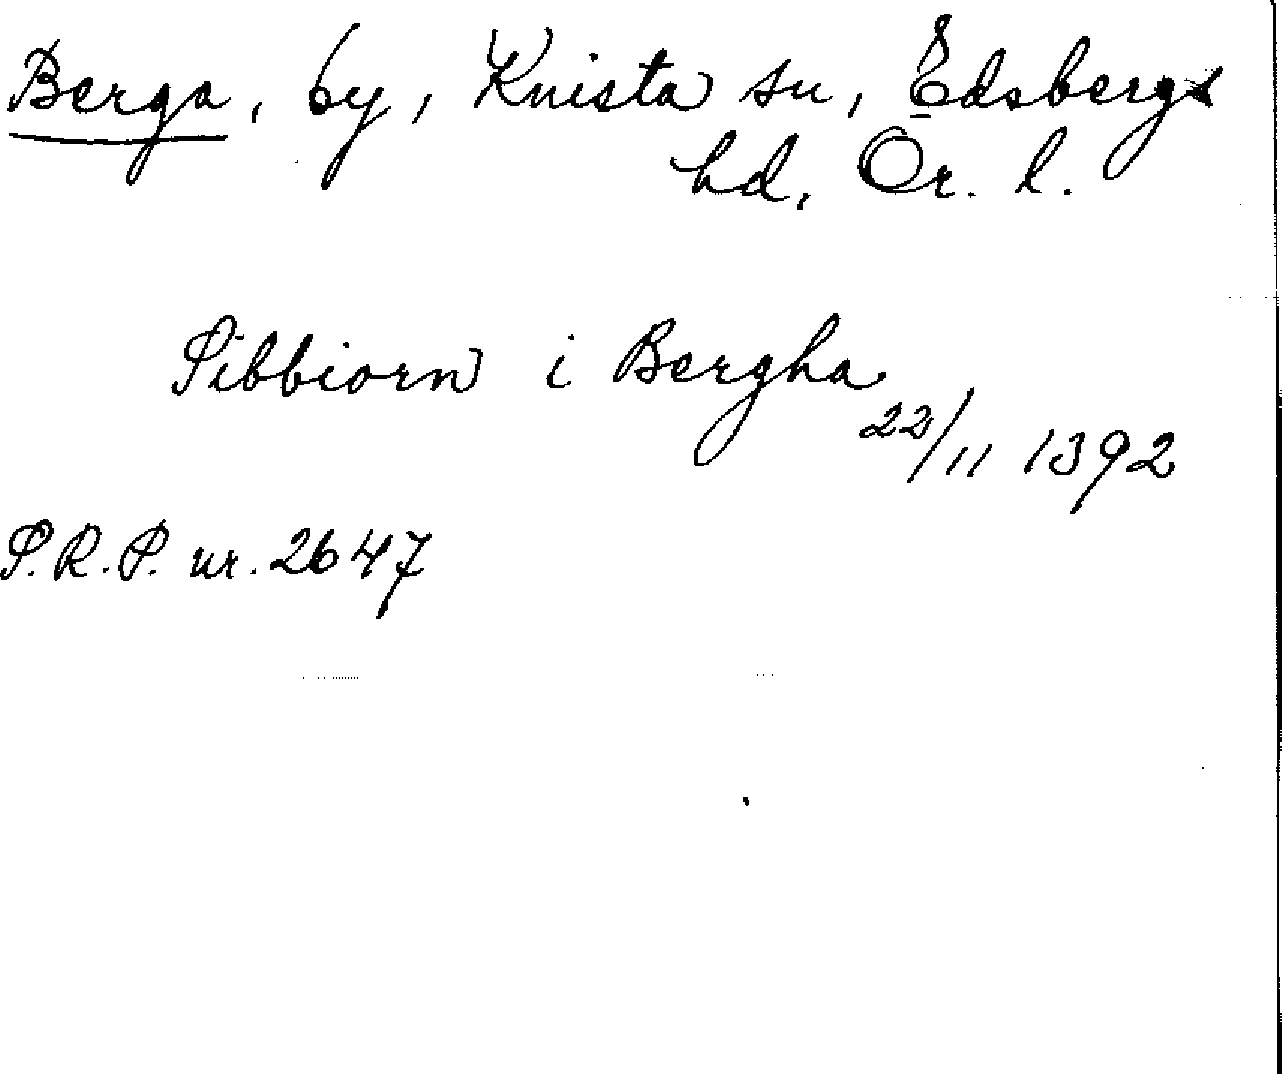 Berga, by, Knista sn, Edsbergs
hd, Ör. l.
Sibbiorn i Bergha
22/11 1392
S.R.P. nr. 2647